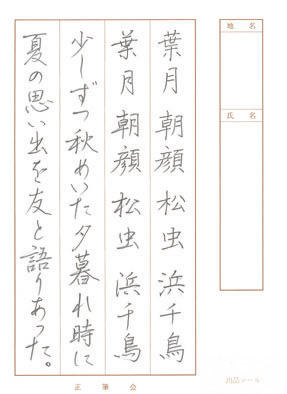 地名
氏名
葉月 朝顔 松虫 浜千鳥
葉月 朝顔 松虫 浜千鳥
少しずつ秋めいた夕暮れ時に
夏の思い出を友と語りあった。
正筆会
出品シール